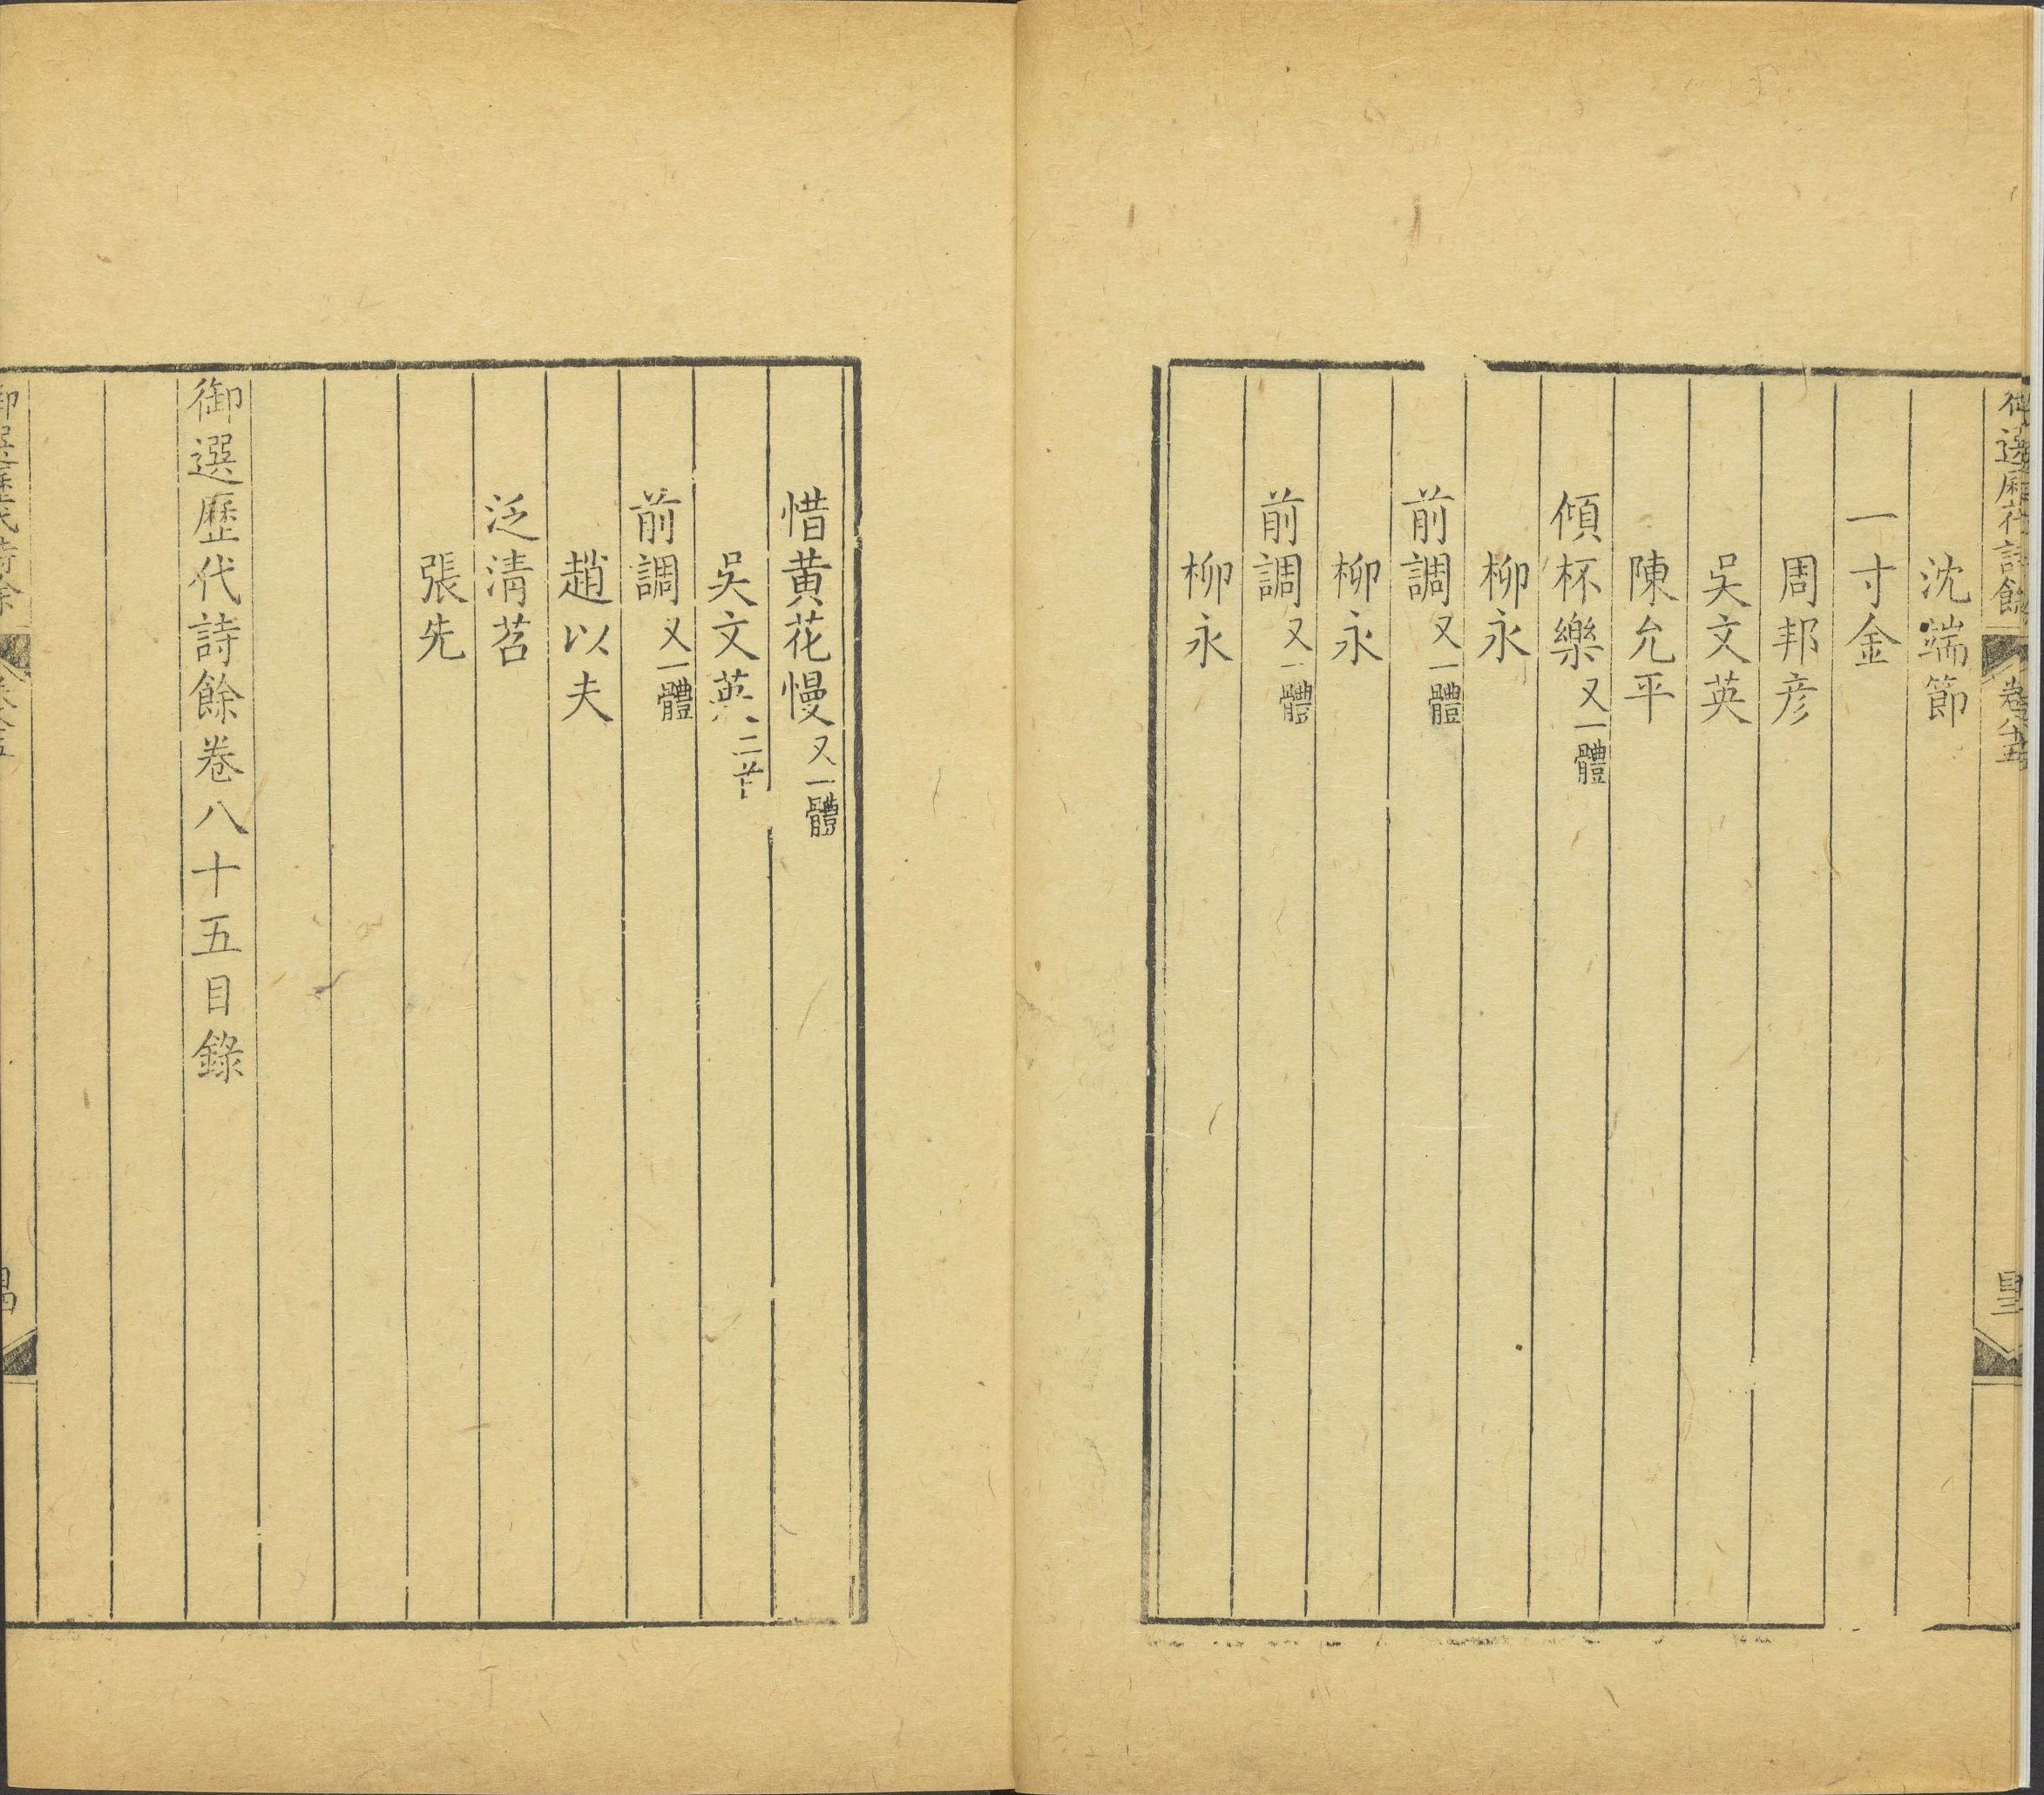 御選歷代詩餘 卷八十五
沈端節
一寸金
周邦彦
吳文英
陳允平
傾杯樂又一體
柳永
前調又一體
柳永
前調又一體
柳永
惜黄花慢又一體
吳文英二首
前調又一體
趙以夫
泛清苕
張先
御選歷代詩餘卷八十五目錄